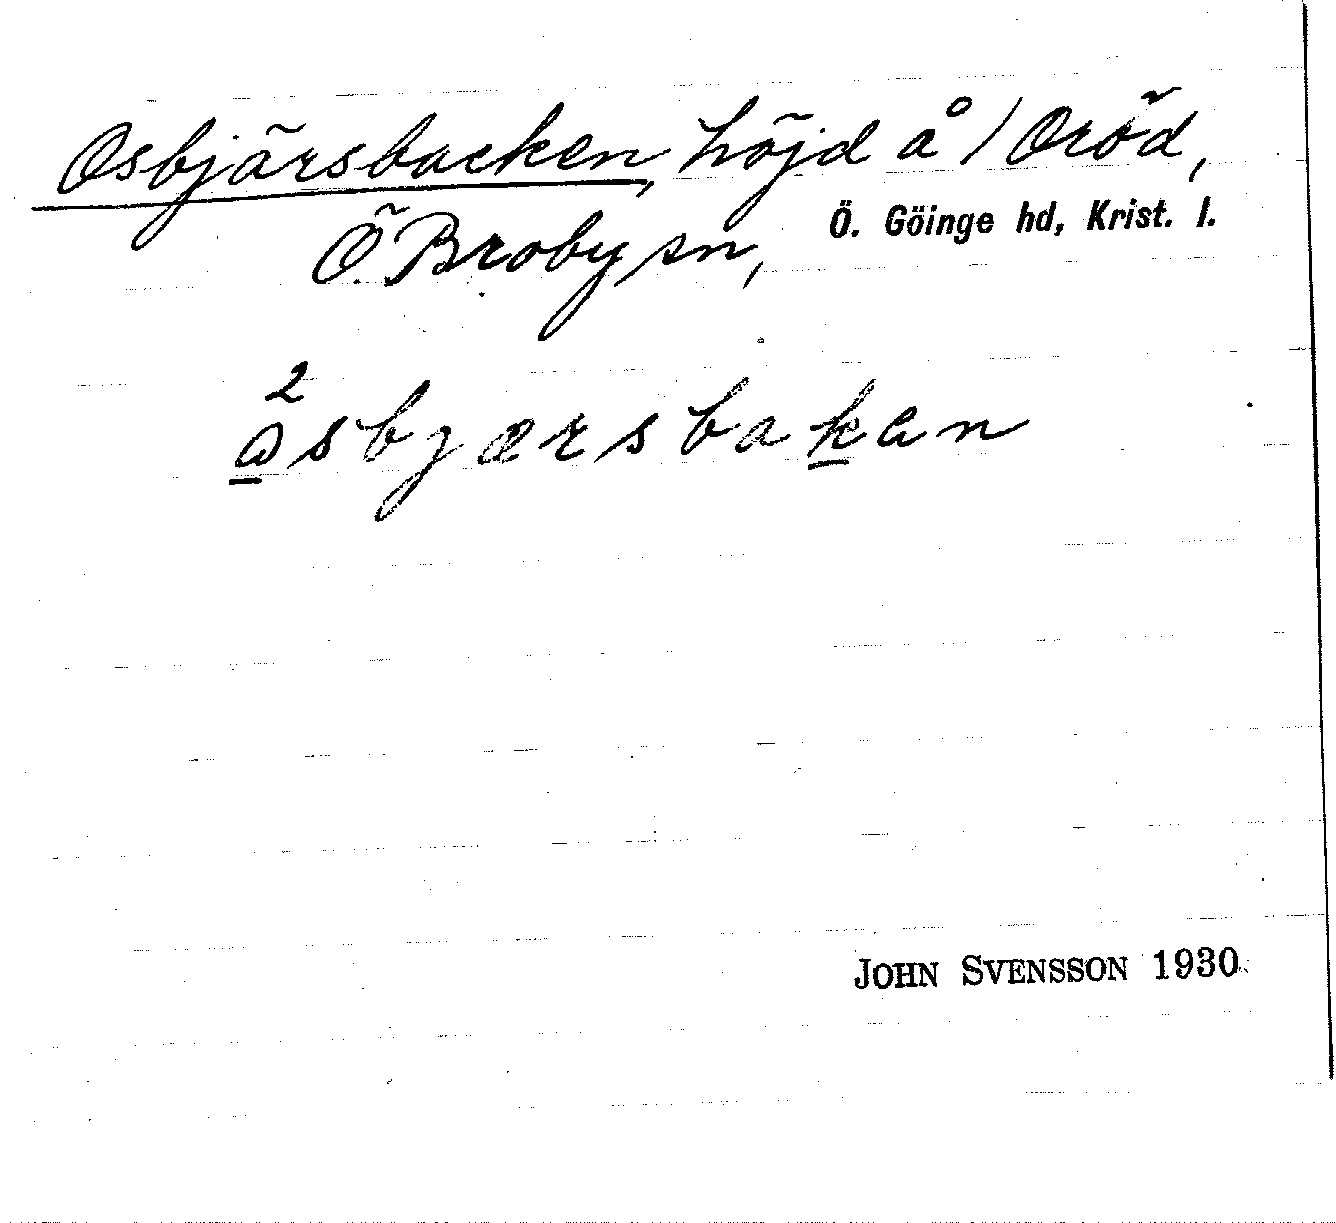 Osbjärsbacken, höjd å 1 Oröd,
Ö. Broby sn, Ö. Göinge hd, Krist. l.
2
åsbjærsbaken
JOHN SVENSSON 1930